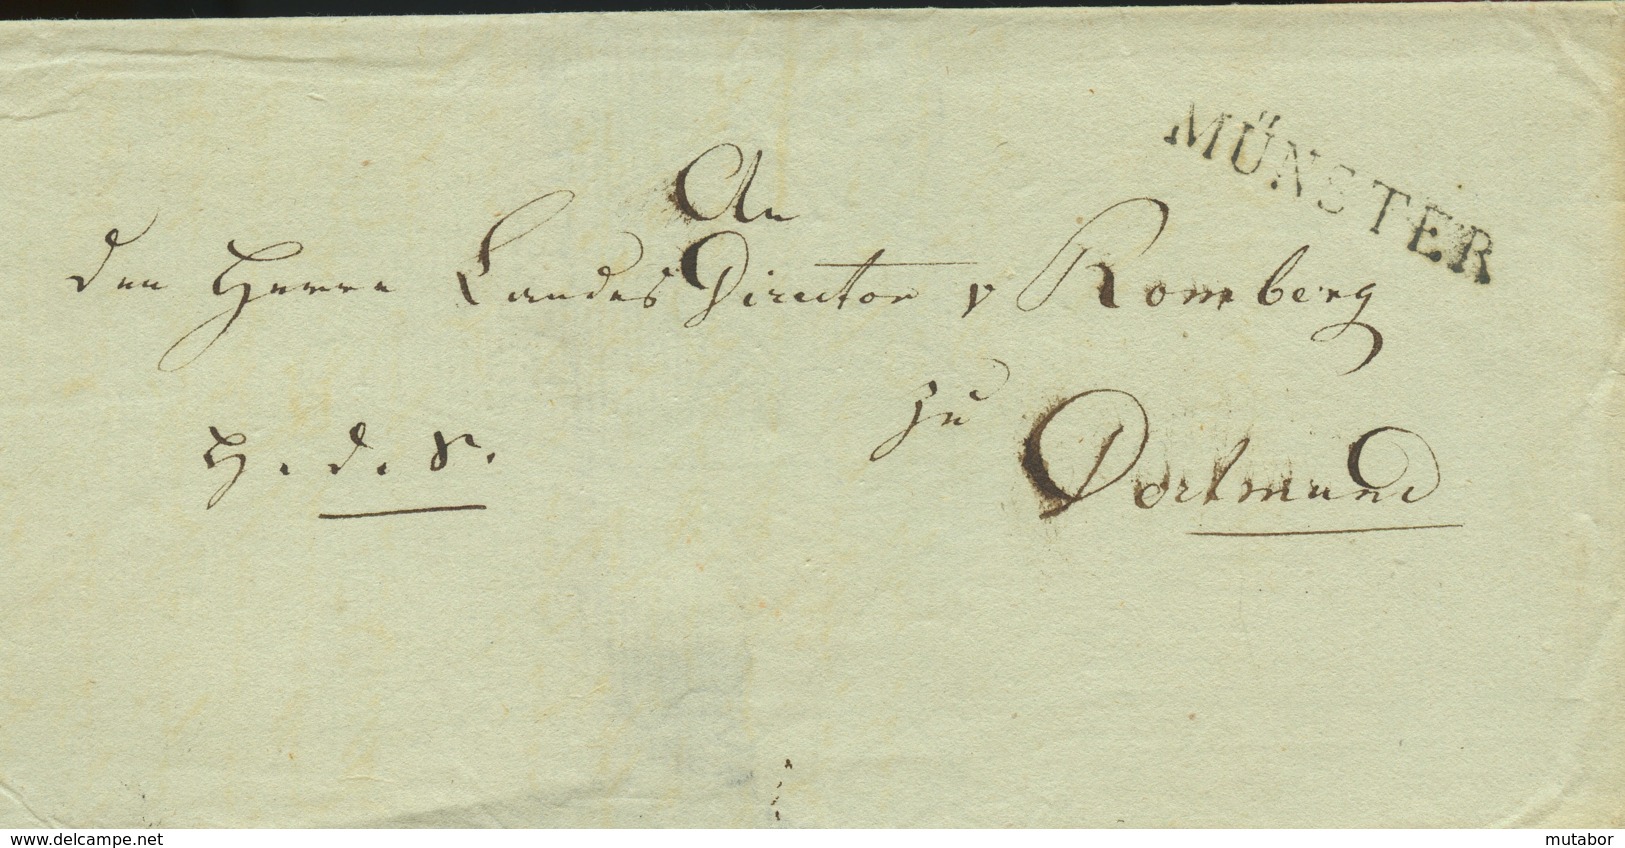 MÜNSTER
An
den Herrn Landes Director v Romberg
zu
H. d. S.
Dortmund
www.delcampe.net
mutabor